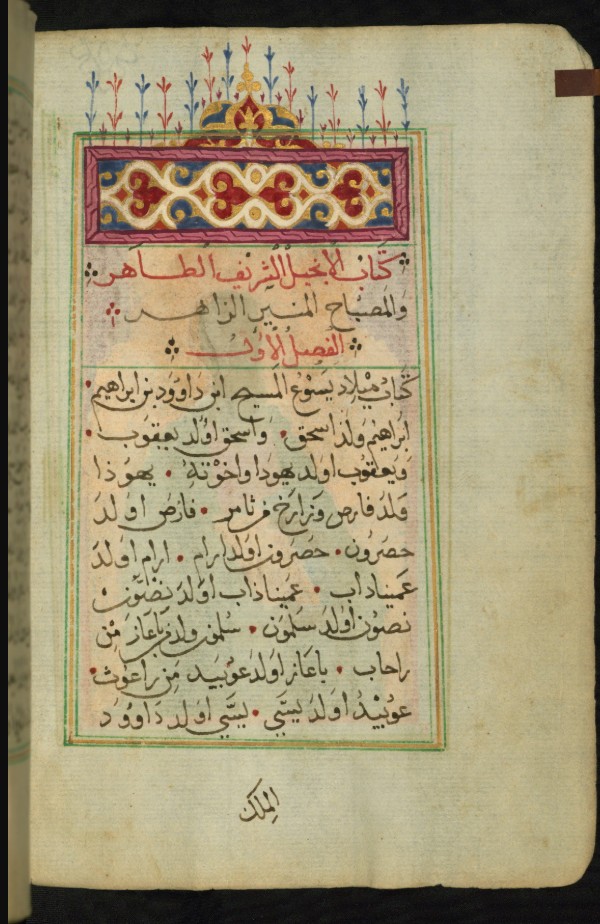 كتاب الانجيل الشريف الطاهر
والمصباح المنير الزاهر
الفصل الاول
كتاب ميلاد يسوع المسيح ابن داوود بن ابراهيم
ابراهيم ولد اسحق واسحق اولد يعقوب
ويعقوب اولد يهودا واخوته يهوذا
ولد فارص وزارخ من ثامر فارص اولد
حصرون حصرون اولد ارام ارام اولد
عميناداب عميناداب اولد نصون
نصون اولد سلمون سلمون ولد باعاز من
راحاب باعاز اولد عوبيد من راعوث
عوبيد اولد يسي يسي اولد داوود
الملك